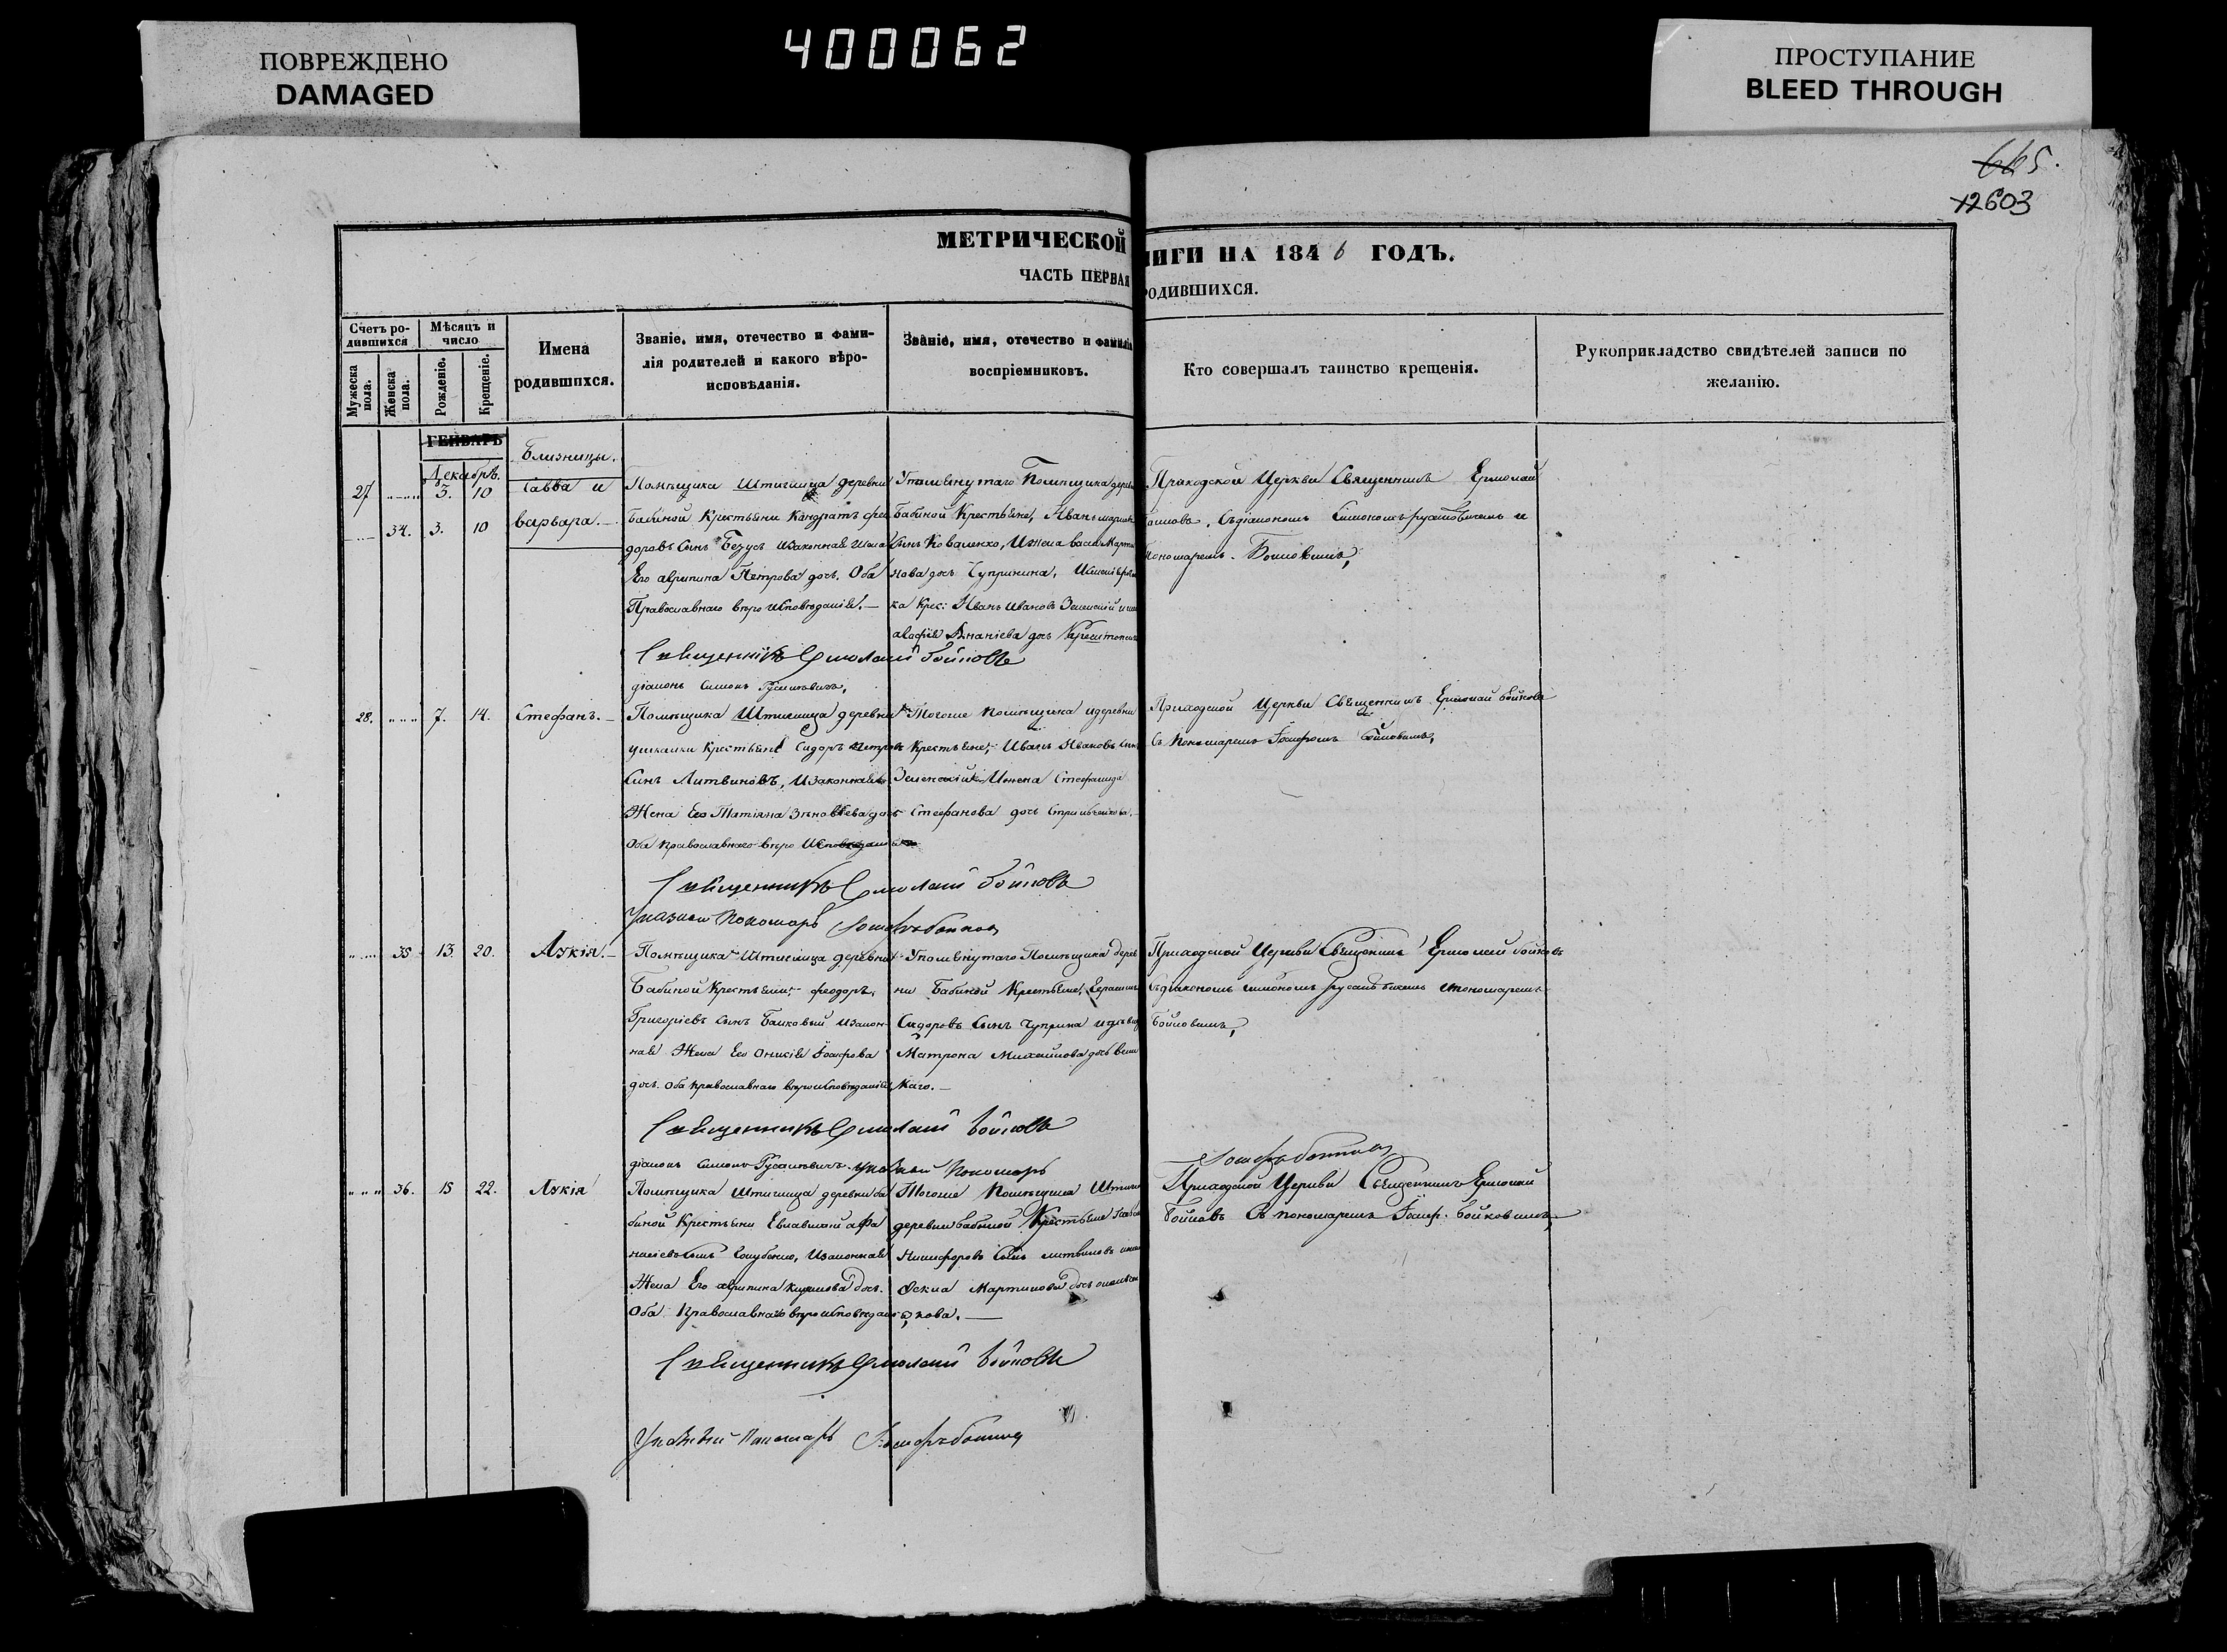 ПОВРЕЖДЕНО
DAMAGED
400062
ПРОСТУПАНИЕ
BLEED THROUGH
665.
12603
МЕТРИЧЕСКОЙ
НИГИ НА 1846 ГОДЪ.
ЧАСТЬ ПЕРВАЯ
РОДИВШИХСЯ.
Счетъ ро-
дившихся
Мужеска
пола.
Женска
пола.
Мѣсяцъ и
число
Рожденіе.
Крещеніе.
Имена
родившихся.
Званіе, имя, отечество и фами-
лія родителей и какого вѣро-
исповѣданія.
Званіе, имя, отечество и фамилія
воспріемниковъ.
Кто совершалъ таинство крещенія.
Рукоприкладство свидѣтелей записи по
желанію.
ГЕНВАРЬ
Декабрь.
27
3.
10
34.
3.
10
Близницы.
Савва и
варвара.
Помѣщика Штиглица деревни
Бабиной Крестьяни Кондратъ фео
доровъ Сынъ Безусъ Изаконная Жена
Его агрипина Петрова дочь. Оба
Православнаго веро Исповѣданія.
Упомянутаго Помѣщика дерев
Бабиной Крестьяне, Иванъ
Сынъ Коваленко, Ижена
нова дочь Чуприкина,
ка Крес: Иванъ Ивановъ Зеленскій
Ананіева дочь
Приходской Церкви Священникъ Ермолай
Бойковъ, Съдіакономъ Симономъ и
пономаремъ Бойковимъ,
Священникъ Ермолай Бойковъ
діаконъ Симонъ
28.
7.
14.
Стефанъ.
Помѣщика Штиглица деревни
Крестьяне Сидоръ Петровъ
Синъ Литвиновъ, Изаконная
Жена Его Татіяна Зѣновѣева дочь
Оба православнаго веро Исповѣданія
Тогоже помѣщика идеревни
Крестьяне, Иванъ Ивановъ Синъ
Зеленскій Ижена Стефанида
Стефанова дочь
Приходской Церкви Священникъ Ермолай Бойковъ
Съ Пономаремъ Іосифомъ Бойковимъ,
Священникъ Ермолай Бойковъ
Указний Пономарь Іосифъ Бойков
35
13.
20.
Лукія.
Помѣщика Штиглица деревни
Бабиной Крестьяни, феодоръ
Григоріевъ Сынъ Изакон-
ная Жена Его Онисія Іосифова
дочь. Оба православнаго вероисповѣданія
Упомянутаго Помѣщика дерев
ни Бабиной Крестьяне,
Сидоровъ Сынъ Чуприна
Матрона Михайлова дочь
каго.
Приходской Церкви Священникъ Ермолай Бойковъ
Съдіакономъ Симономъ ипономаремъ
Бойковимъ,
Священникъ Ермолай Бойковъ
діаконъ Симонъ Указний Пономарь
Іосифъ Бойков
36.
15
22.
Лукія
Помѣщика Штиглица деревни ба
биной Крестьяни Афа
насіевъ Сынъ Изаконная
Жена Его агрипина дочь.
Оба Православнаго вероисповѣданія,
Тогоже Помѣщика Штигли
деревни бабиной Крестьяне
Никифоровъ Сынъ литвиновъ
Мартинова дочь
кова.
Приходской Церкви Священникъ Ермолай
Бойковъ Съ пономаремъ Іосиф. Бойковимъ,
Священникъ Ермолай Бойковъ
Указний Пономарь Іосифъ Бойков